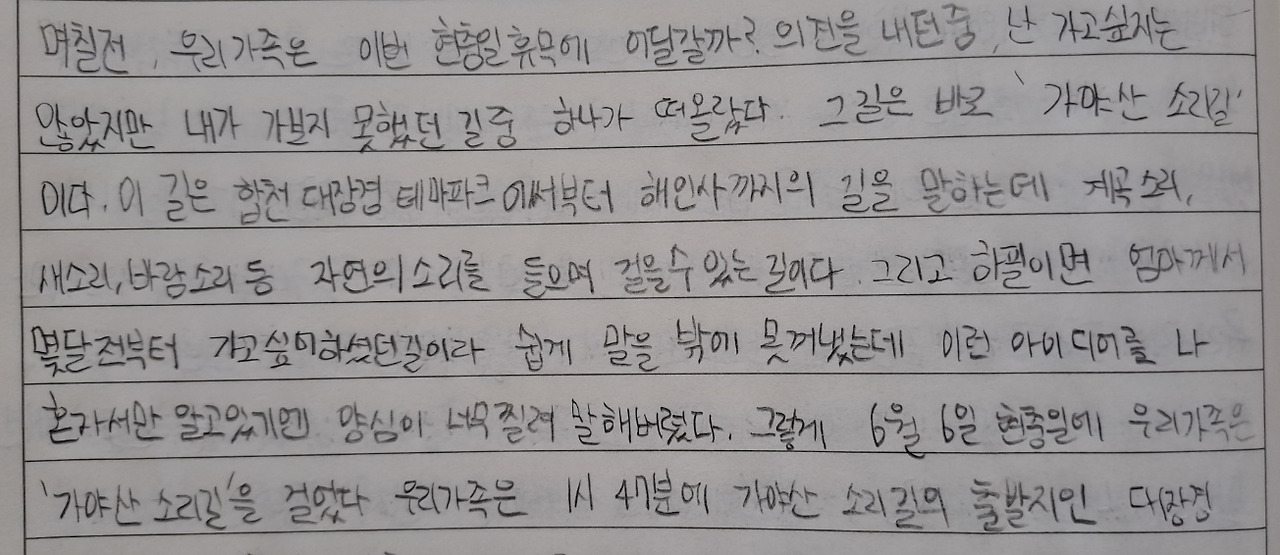 며칠전, 우리가족은 이번 현충일휴무에 어딜갈까? 의견을 내던중, 난 가고싶지는
않았지만 내가 가보지 못했던 길중 하나가 떠올랐다. 그길은 바로 '가야산 소리길'
이다. 이 길은 합천 대장경 테마파크에서부터 해인사까지의 길을 말하는데 계곡소리,
새소리, 바람소리 등 자연의소리를 들으며 걸을수 있는 길이다. 그리고 하필이면 엄마께서
몇달전부터 가고싶어하셨던길이라 쉽게 말을 밖에 못꺼냈는데 이런 아이디어를 나
혼자서만 알고있기엔 양심이 너무 찔려 말해버렸다. 그렇게 6월 6일 현충일에 우리가족은
'가야산 소리길'을 걸었다 우리가족은 1시 47분에 가야산 소리길의 출발지인 대장경